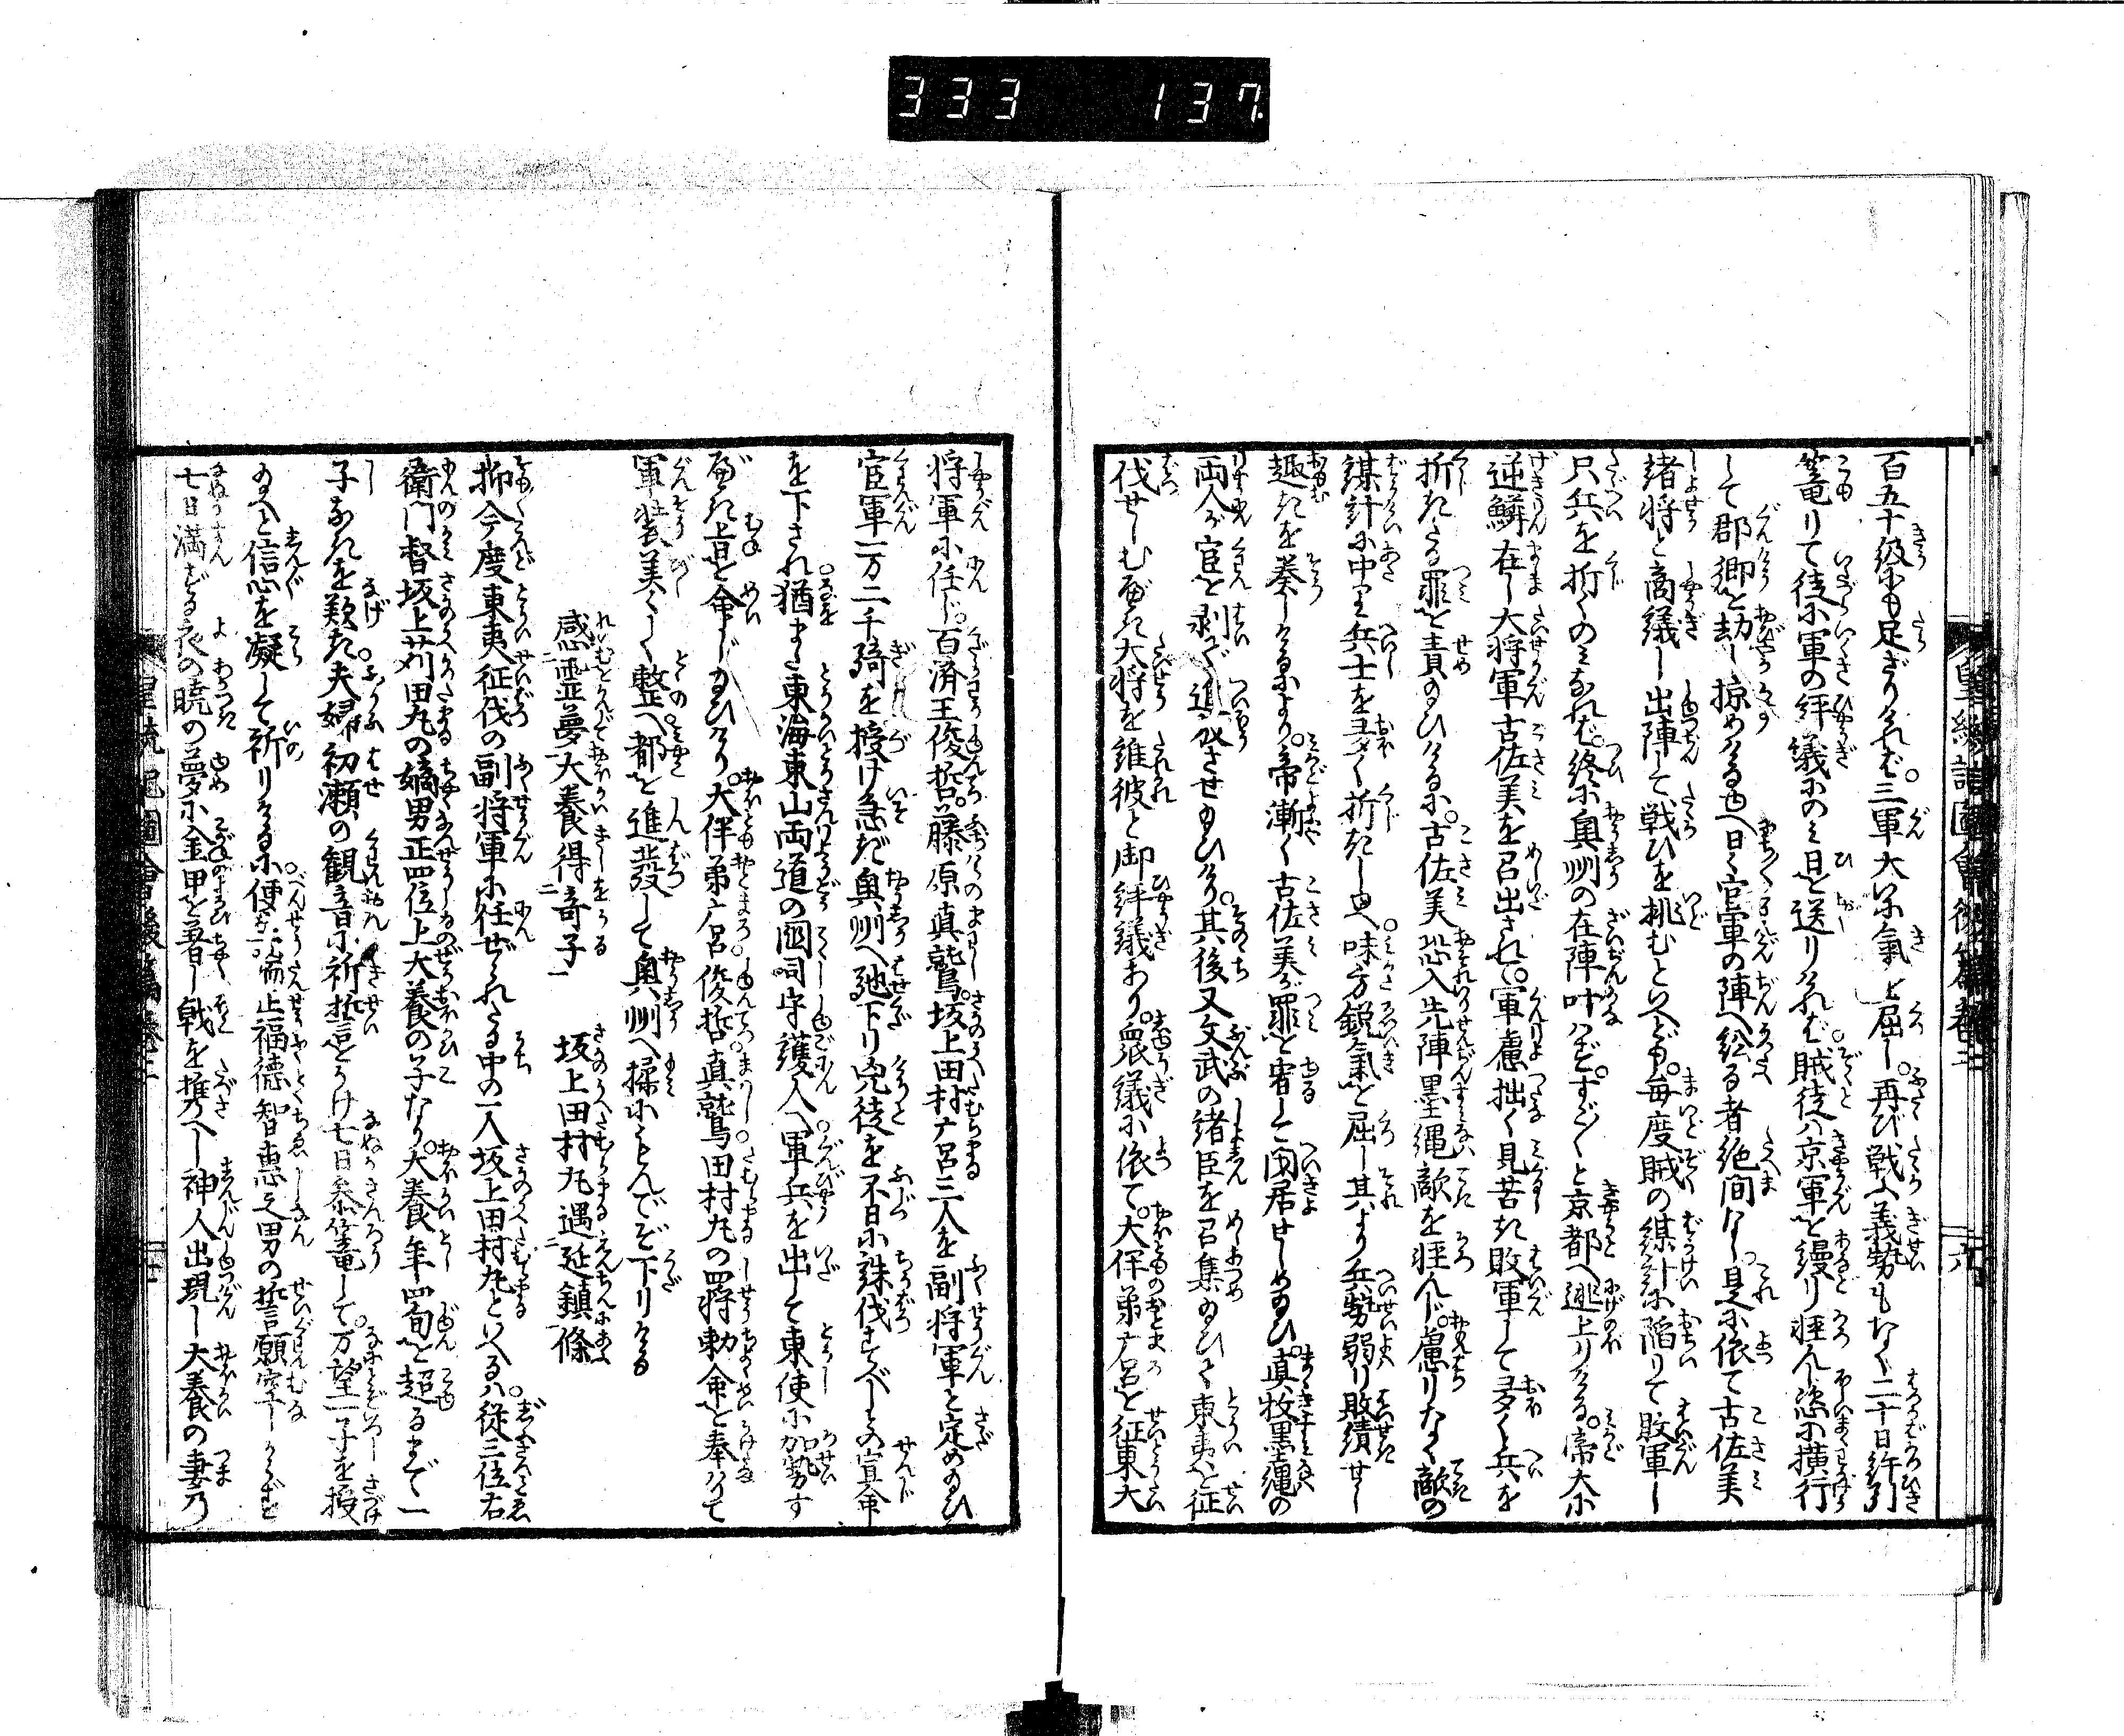 333 137
百五十級にも足ざりければ。三軍大に氣上屈し。再び戦ふ義勢もなく二十日許引
篭りて徒に軍の評議にのミ日を送りければ。賊徒ハ京軍を縵り狂んじ恣に横行
して郡郷を劫し掠めける由へ日々官軍の陣へ訟る者絶間なし。是に依て古佐美
緒将と商議し出陣して戦ひを挑むといへども。毎度賊の謀計に陥りて敗軍し
只兵を折くのミなれば。終に奥州の在陣叶ハず。すご〱と京都へ逃上りける。帝大に
逆鱗在し大将軍古佐美を召出され。軍慮拙く見苦き敗軍して多く兵を
折きたる罪を責のひけるに。古佐美恐入先陣墨縄敵を狂んじ慮りなく敵の
謀計に中り兵士を多く折きし由へ。味方鋭氣を屈し其より兵勢弱り敗績せし
趣きを奏しけるにより。帝漸く古佐美が罪を宥して閉居せしめ給ひ。真牧墨縄の
両人が官を剥で追放させ給ひけり。其後又文武の緒臣を召集給ひて東夷を征
伐せしむべき大将を誰彼と御評議あり。衆議に依て。大伴弟广呂を征東大
将軍に任じ。百済王俊哲。藤原真鷲。坂上田村广呂三人を副将軍と定め給ひ
官軍一万二千騎を授け急ぎ奥州へ馳下り兇徒を不日に誅伐すべしとの宣命
を下され猶また東海東山両道の國司守護人へ軍兵を出して東使に加勢す
べき旨を命じ給ひけり。大伴弟广呂俊哲真鷲田村丸の四将勅命を奉ハりて
軍装美々しく整へ都を進發して奥州へ揉にもんでぞ下りける
感霊夢大養得竒子 坂上田村丸遇延鎮條
抑今度東夷征伐の副将軍に任ぜられたる中の一人坂上田村丸といへるハ從三位右
衛門督坂上苅田丸の嫡男正四位上大養の子なり。大養年四旬を超るまで一
子なきを歎き夫婦初瀬の観音に祈誓をかけ七日参篭して。万望一子を授
給へと信心を凝して祈りけるに便 福德智惠之男の誓願空しからずと
七日満ずる夜の暁の夢に金甲を着し戟を携へし神人出現し大養の妻乃